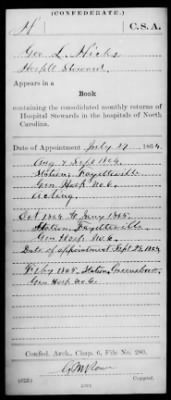 (CONFEDERATE.)
H C. S. A.
Geo L. Hicks
Hosptl Steward
Appears in a
Book
containing the consolidated monthly returns of
Hospital Stewards in the hospitals of North
Carolina.
Date of Appointment July 27 1864
Aug & Sept 1864
Station, Fayetteville
Gen Hosp No. 6.
Acting
Oct 1864 to Jany 1865
Station Fayetteville
Gen Hosp. No. 6.
Date of appointment Sept 29, 1864
Feby 1865, Station, Greensboro
Gen Hosp No 6.
Confed. Arch., Chap. 6, File No. 280.
Copyist.